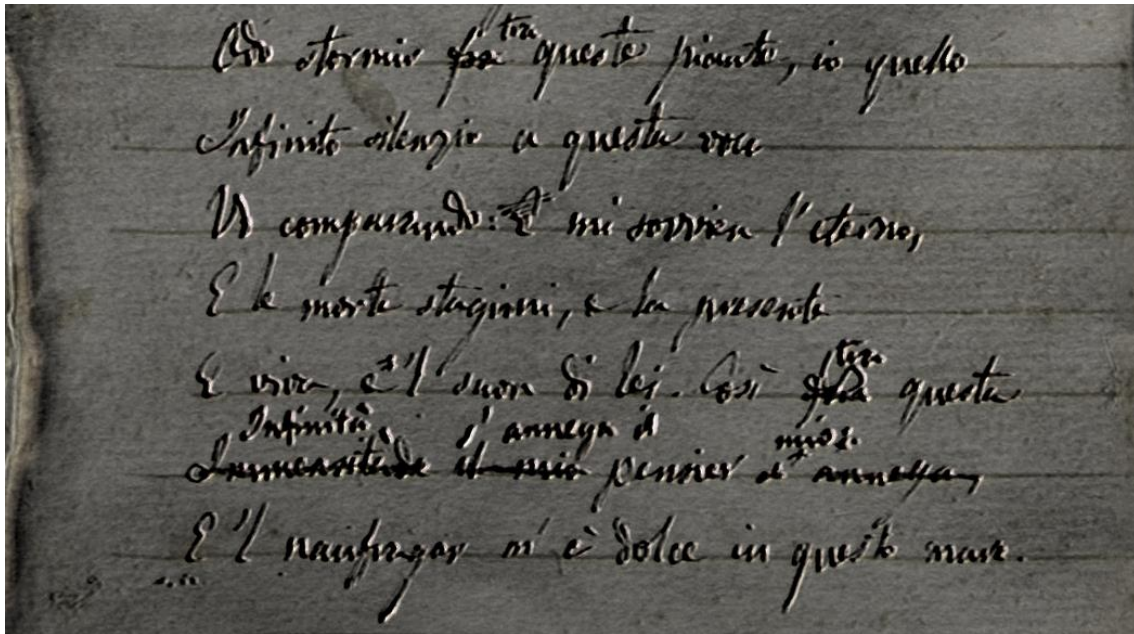 tra
Odo stormir fra queste piante, io quello
Infinito silenzio a questa voce
Vo comparando: E mi sovvien l'eterno,
E le morte stagioni, e la presente
tra
E viva, e 'l suon di lei. Così fra questa
Infinità s'annega il mio:
Immensitade il mio pensier s'annega,
E 'l naufragar m'è dolce in questo mare.